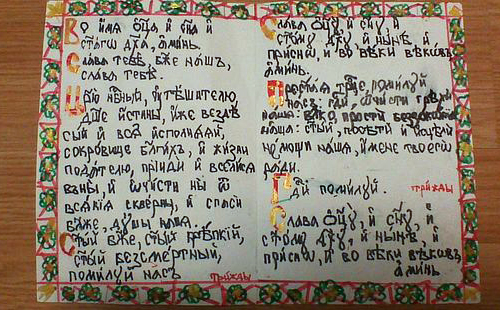 Во имя Оц҃а и Сн҃а и
Ст҃аго Дх҃а, а҆минь.
Слава тебѣ, Бж҃е нашъ,
слава Тебѣ.
Цр҃ю Нбⷭ҇ный, ᲂу҆тѣшителю,
Дш҃е истины, иже вездѣ
сый и всѧ исполнѧѧй,
сокровище благихъ, и жизни
подателю, прїиди и вселисѧ
въ ны, и ѡчисти ны ѿ
всѧкїѧ скверны, и спаси
Бл҃же, душы наша.
Ст҃ый Бж҃е, ст҃ый крѣпкїй,
ст҃ый безсмертный,
помилуй насъ трижды
Слава Оц҃у, и Сн҃у, и
Ст҃ому Дх҃у, и нынѣ, и
присно, и во вѣки вѣковъ
а҆минь.
Прест҃аѧ Трⷪ҇це, помилуй
насъ: Гдⷭ҇и, ѡчисти грѣхи
наша: Влⷣко, прости беззаконїѧ
наша: ст҃ый, посѣти и исцѣли
немощи нашѧ, имене твоегѡ
ради.
Гдⷭ҇и помилуй. трижды
Слава Оц҃у, и Сн҃у, и
Ст҃ому Дх҃у, и нынѣ, и
присно, и во вѣки вѣковъ
аминь